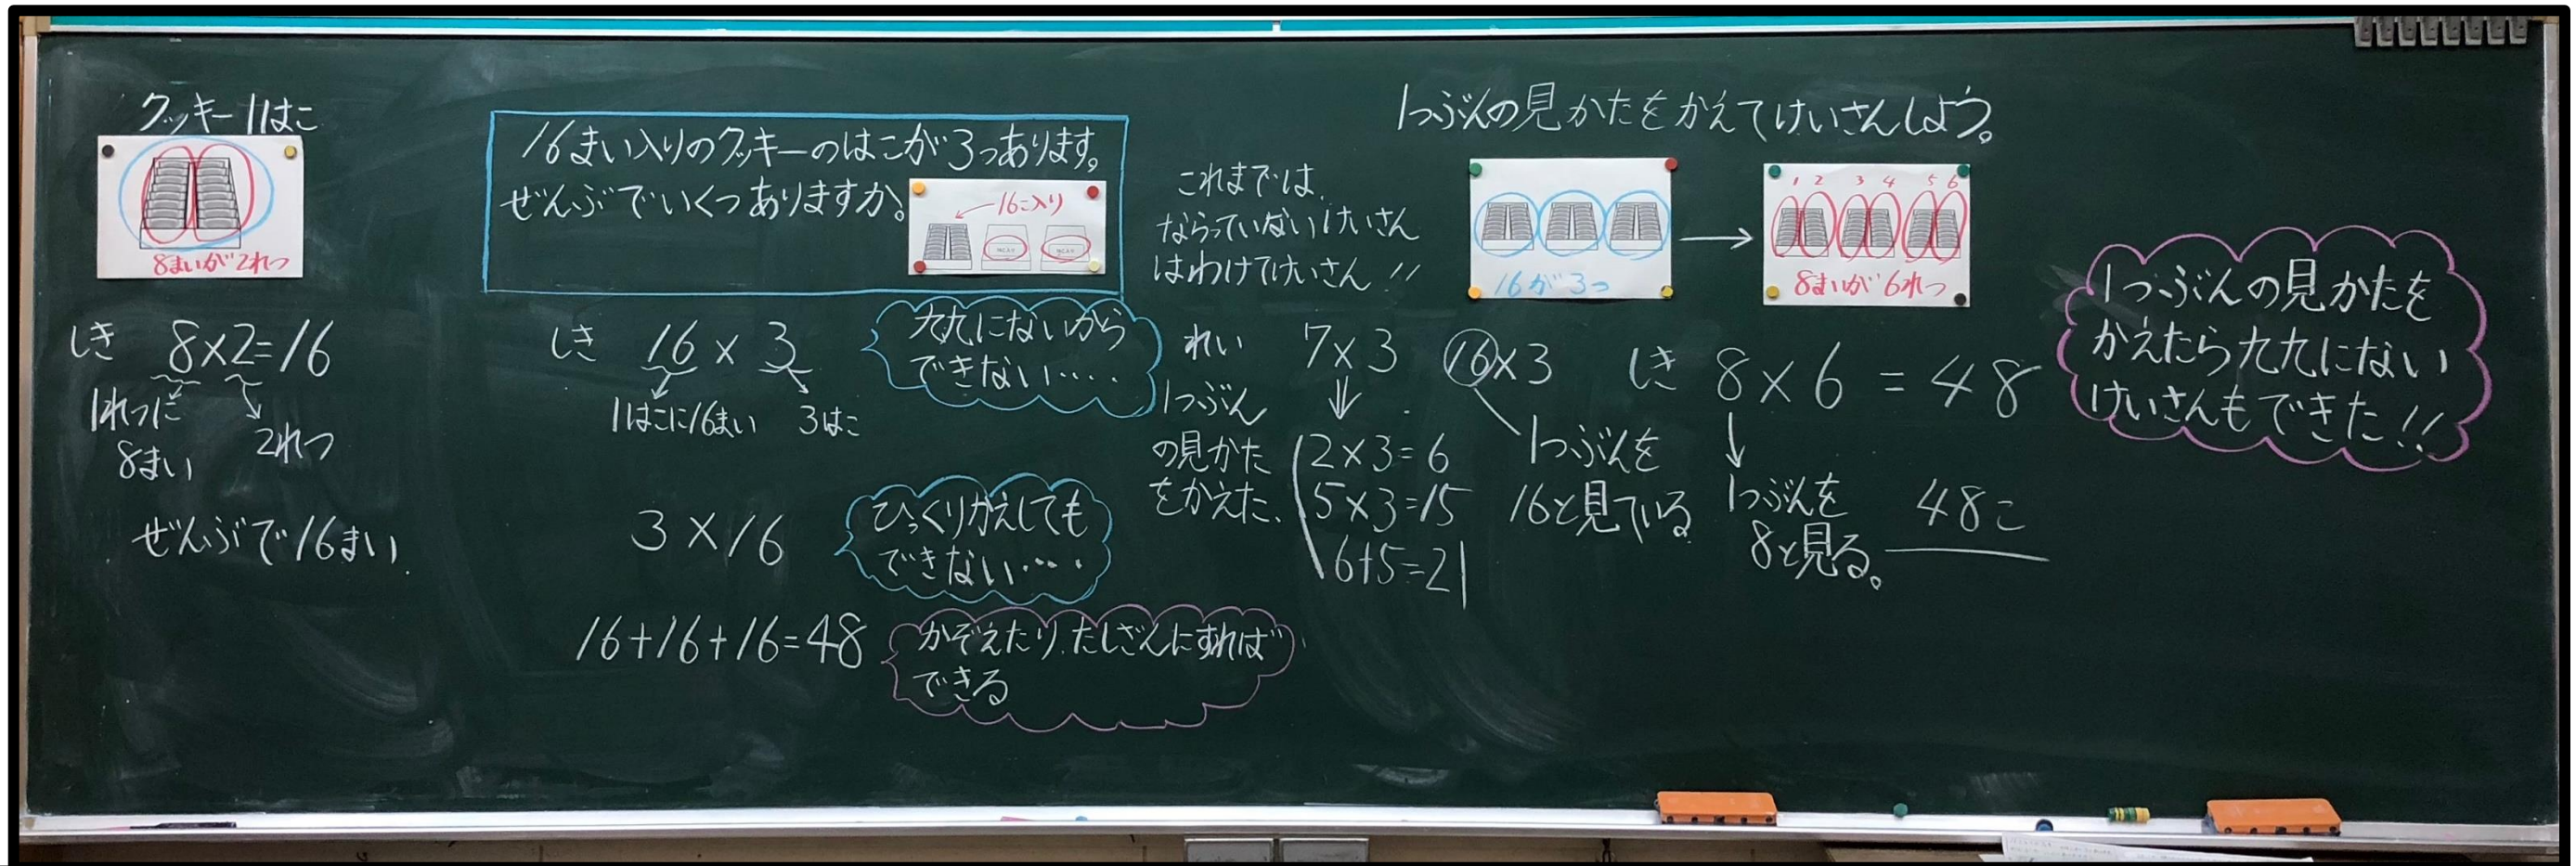 クッキー1はこ
8まいが2れつ
しき 8×2=16
1れつに
8まい
2れつ
ぜんぶで16まい.
16まい入りのクッキーのはこが3つあります。
ぜんぶでいくつありますか。
16こ入り
しき 16×3
1はこに16まい 3はこ
九九にないから
できない‥‥
3×16
ひっくりかえしても
できない‥‥
16+16+16=48
かぞえたり、たしざんにすれば
できる
これまでは、
ならっていないけいさん
はわけてけいさん!!
れい
1つぶん
の見かた
をかえた、
7×3
2×3=6
5×3=15
6+5=21
1つぶんの見かたをかえてけいさんしよう。
16が3つ
1 2 3 4 5 6
8まいが6れつ
16×3
1つぶんを
16と見ている
しき 8×6=48
1つぶんを
8と見る。
48こ
1つぶんの見かたを
かえたら九九にない
けいさんもできた!!